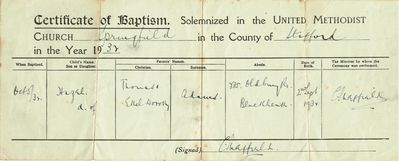 Certificate of Baptism. Solemnized in the UNITED METHODIST
CHURCH Springfield in the County of Stafford
in the Year 1932
When Baptized. Child's Name. Son or Daughter. Parents' Names. Christian. Surname. Abode. Born. The Minister by whom the Ceremony was performed.
Oct 5/32. Hazel d. of Thomas Ethel Dorothy Adams. Oldbury Rd. Blackheath 2nd Sept 1932
(Signed)